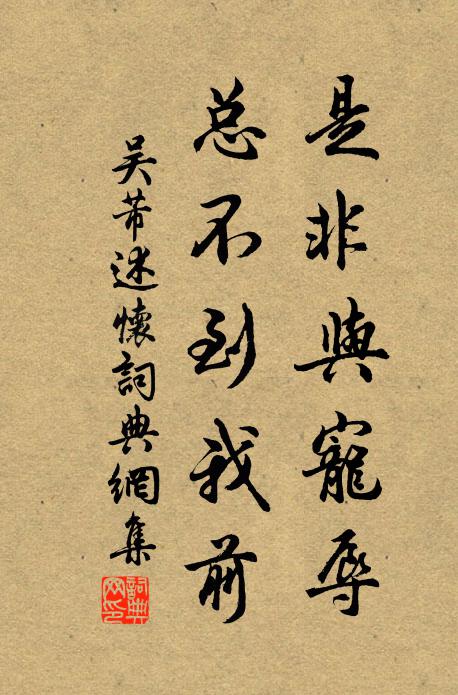 是非與寵辱
总不到我前
吴芾述懷詞典網集
詞典网印